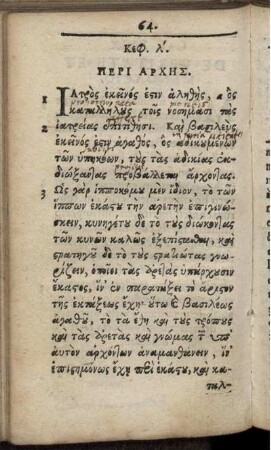 64.
Κεφ. λ'.
ΠΕΡΙ ΑΡΧΗΣ.
1 ΙΑτρὸς ἐκεῖνός ἐστιν ἀληθὴς, ὁς
καταλλήλως τοῖς νοσήμασι τὰς
2 ἰατρείας ἐπιτίθησι. Καὶ βασιλεὺς
ἐκεῖνός ἐστιν ἀγαθὸς, ὁς ἀδικουμένων
τῶν ὑπηκόων, τοὺς τὰς ἀδικίας ἐκ-
διώξοντας προβάλλεται ἄρχοντας.
3 Ὡς γὰρ ἱπποκόμου μὲν ἴδιον, τὸ τῶν
ἵππων ἑκάστου τὴν ἀρετὴν ἐπιγινώ-
σκειν, κυνηγέτου δὲ τὸ τοὺς διώκοντας
τῶν κυνῶν καλῶς ἐξεπίστασθαι, καὶ
στρατηγοῦ δὲ τὸ τοὺς στρατιώτας γνω-
ρίζειν, ὁποῖαι τὰς ἀρετὰς ὑπάρχουσιν
ἕκαστος, ἵν' ἐν παρατάξει τὸ ἄρμοτον
τῆς ἐκτάξεως ἔχῃ· οὕτω καὶ βασιλέως
ἀγαθοῦ, τὸ τὰ ἔθη καὶ τοὺς τρόπους
καὶ τὰς ἀρετὰς καὶ γνώμας τῶν ὑπ'
αὐτὸν ἀρχόντων ἀναμανθάνειν, ἵν'
ἐπιστημόνως ἔχῃ περὶ ἑκάστου, καὶ κα-
ταλ-